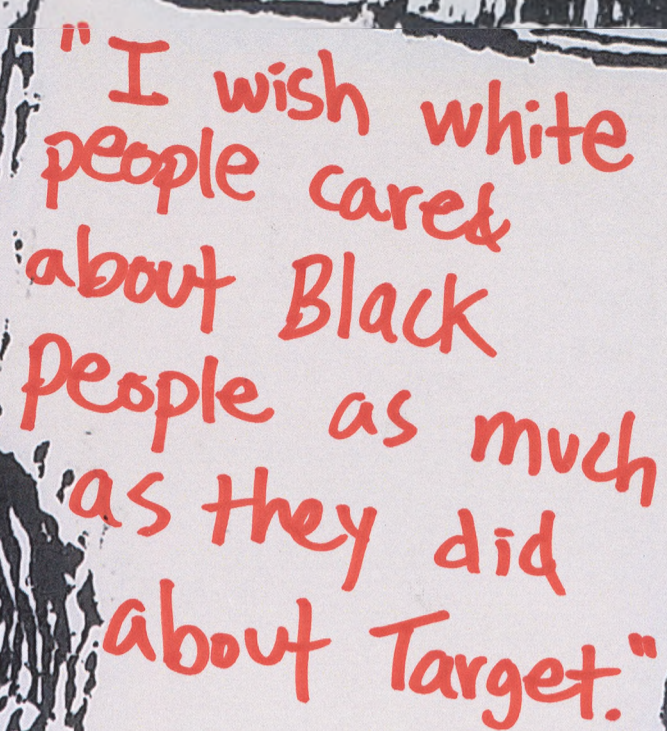 "I wish white
people cared
about Black
people as much
as they did
about Target."